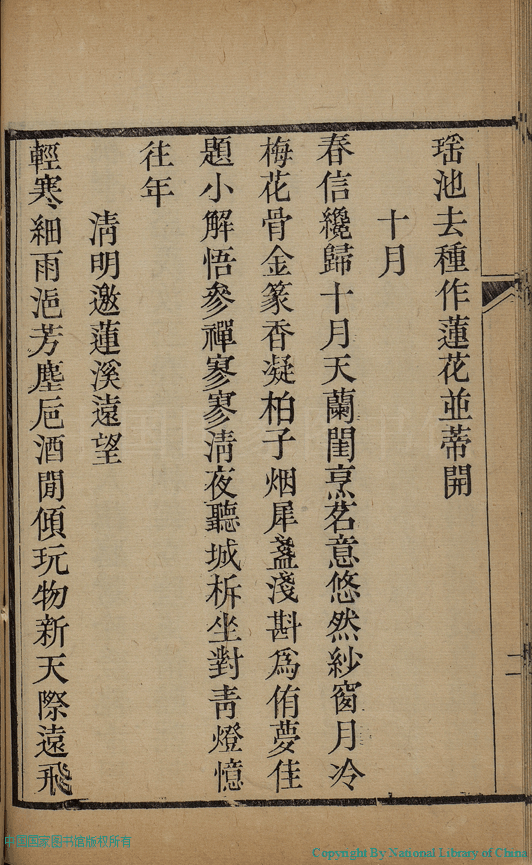 瑶池去種作蓮花並蒂開
十月
春信纔歸十月天蘭閨烹茗意悠然紗窗月冷
梅花骨金篆香凝柏子烟犀盞淺斟爲侑夢佳
題小解悟參禪寥寥清夜聽城柝坐對青燈憶
往年
清明邀蓮溪遠望
輕寒細雨浥芳塵巵酒閒傾玩物新天際遠飛
二
中国国家图书馆版权所有
Copyright By National Library of China